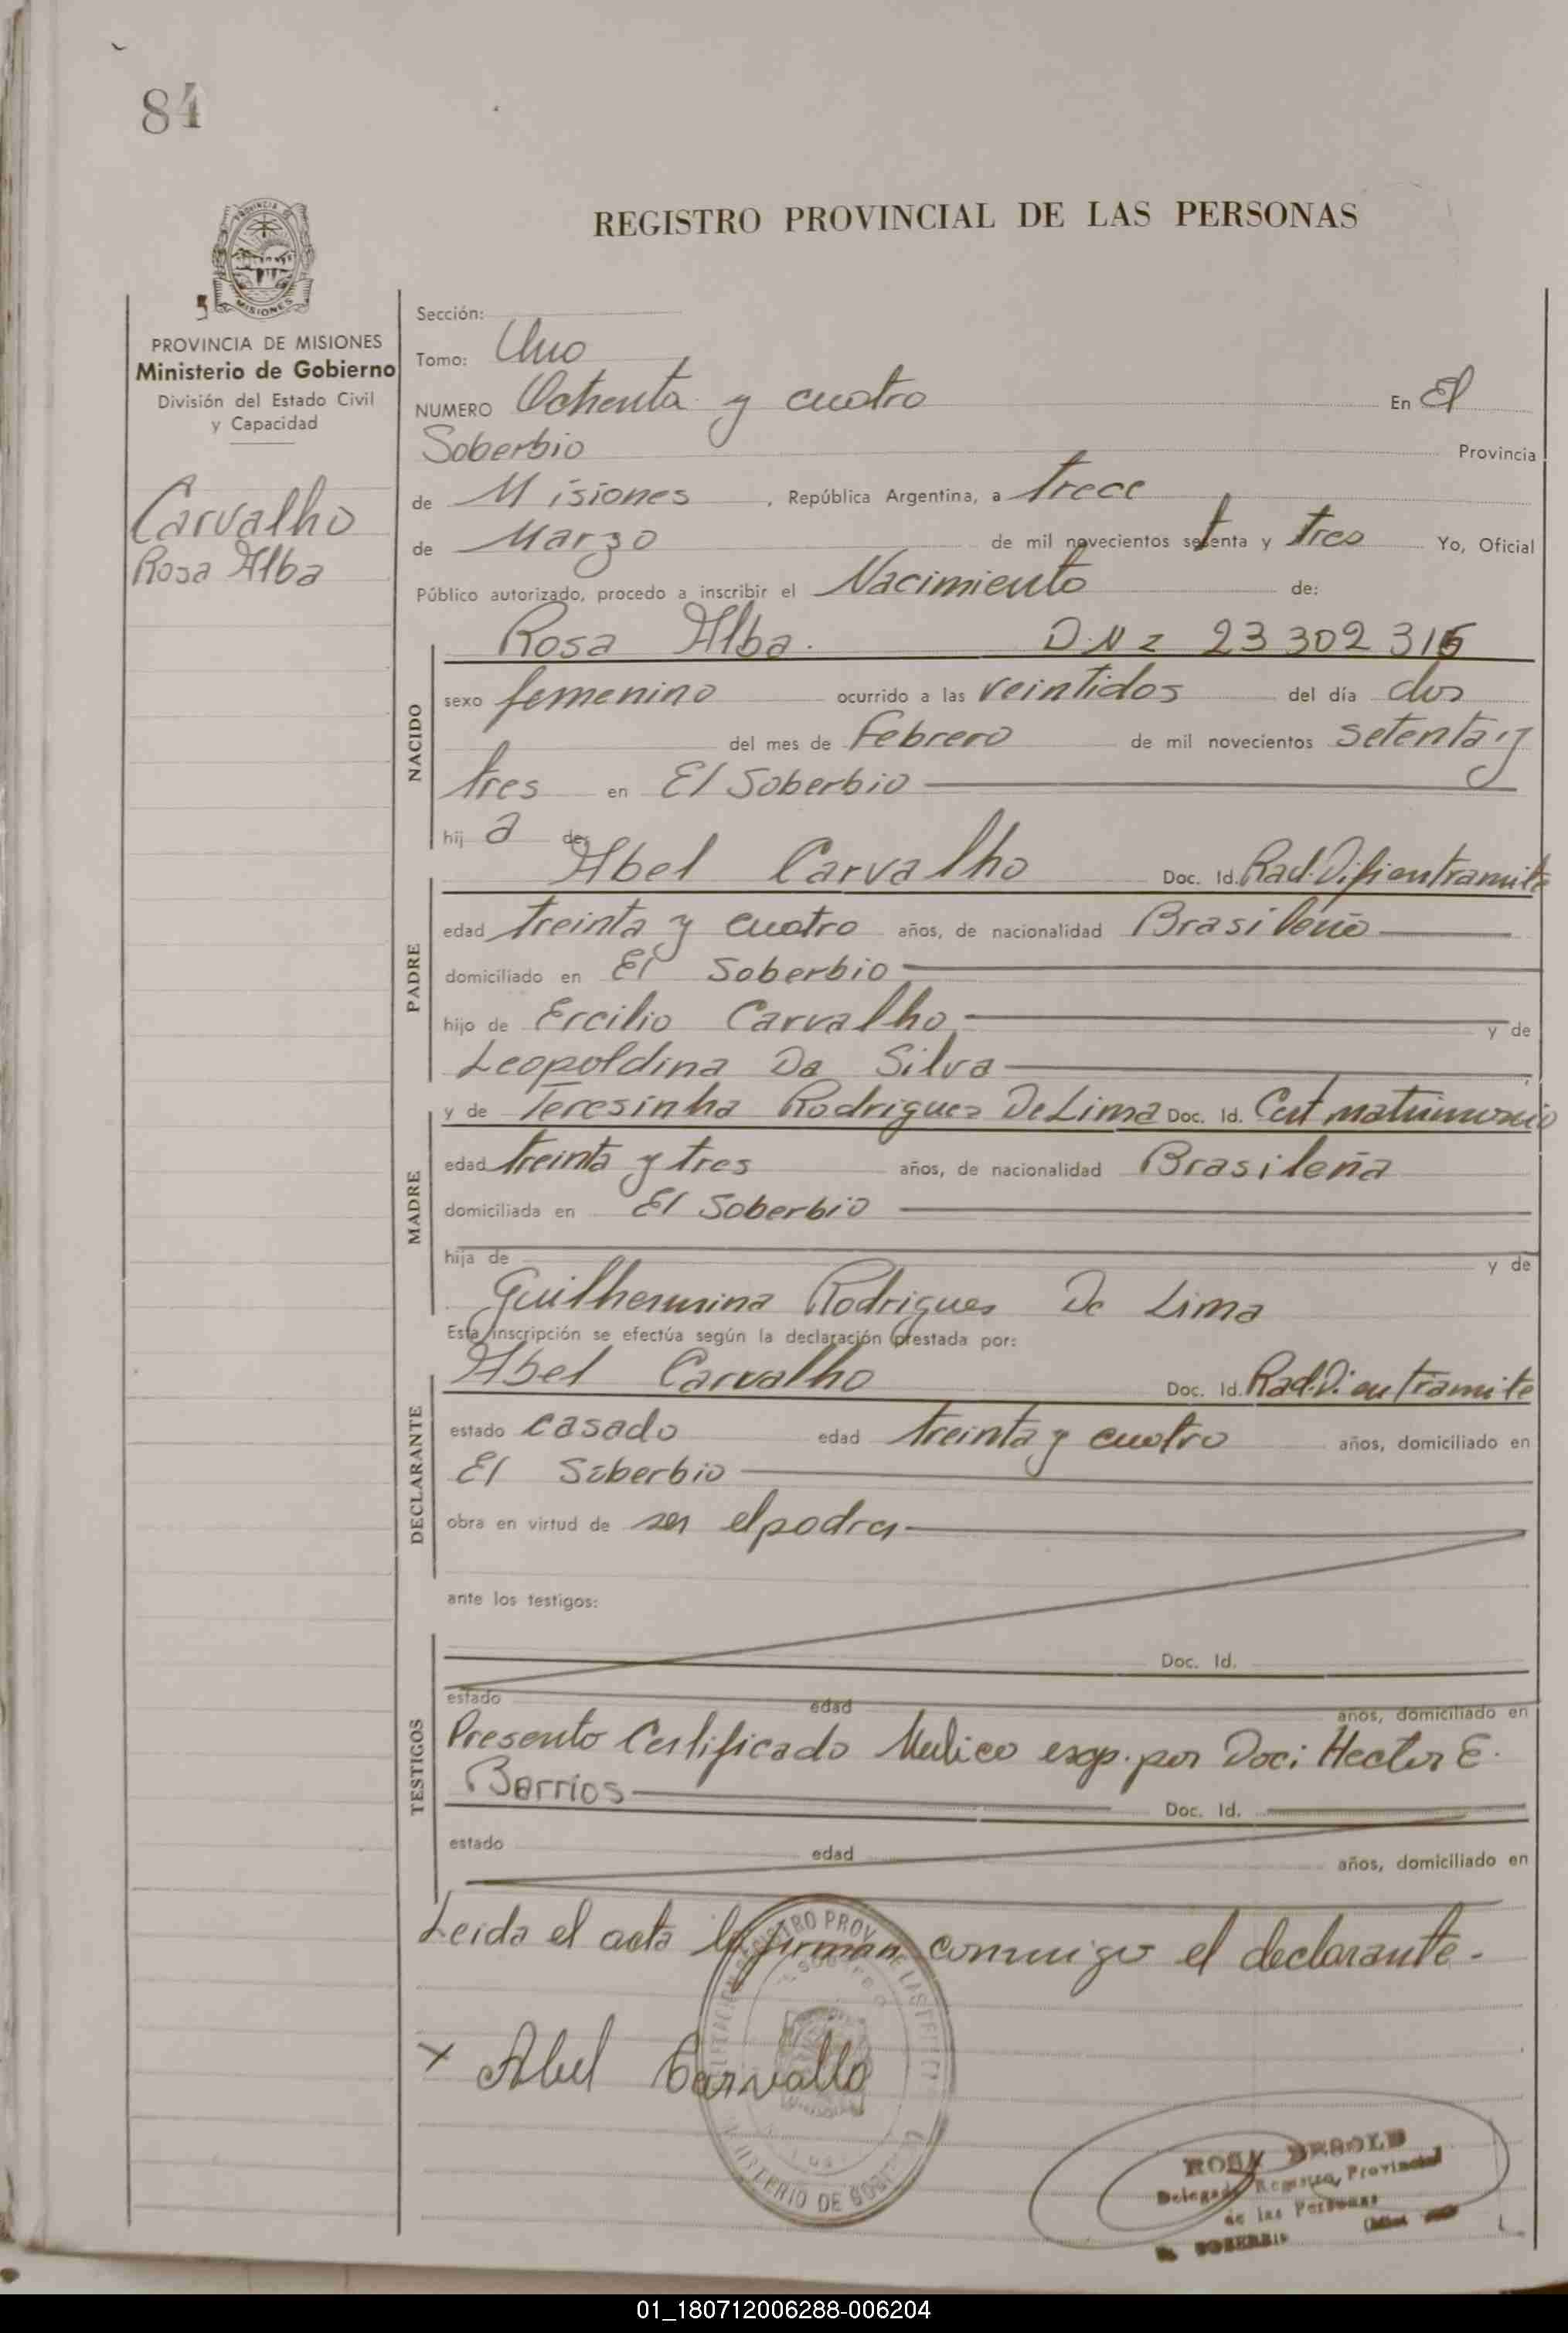 84
REGISTRO PROVINCIAL DE LAS PERSONAS
PROVINCIA DE MISIONES
Ministerio de Gobierno
División del Estado Civil
y Capacidad
Carvalho
Rosa Alba
Sección:
Tomo: Uno
NUMERO Ochenta y cuatro En El
Soberbio Provincia
de Misiones, República Argentina, a trece
de Marzo de mil novecientos setenta y tres Yo, Oficial
Público autorizado, procedo a inscribir el Nacimiento de:
Rosa Alba. D.N.I 23 302 316
NACIDO
sexo femenino ocurrido a las veintidos del día dos
del mes de Febrero de mil novecientos setenta y
tres en El Soberbio
hij a de:
Abel Carvalho Doc. Id. Rad. Difi en tramite
PADRE
edad treinta y cuatro años, de nacionalidad Brasileño
domiciliado en El Soberbio
hijo de Ercilio Carvalho y de
Leopoldina Da Silva
y de Teresinha Rodrigues De Lima Doc. Id. Cert matrimonio
MADRE
edad treinta y tres años, de nacionalidad Brasileña
domiciliada en El Soberbio
hija de y de
Guilhermina Rodrigues De Lima
Esta inscripción se efectúa según la declaración prestada por:
Abel Carvalho Doc. Id. Rad. Di en tramite
DECLARANTE
estado casado edad treinta y cuatro años, domiciliado en
El Soberbio
obra en virtud de ser el padre
ante los testigos:
Doc. Id.
TESTIGOS
estado edad años, domiciliado en
Presento Certificado Medico exp. por Doc: Hector E.
Barrios Doc. Id.
estado edad años, domiciliado en
Leida el acta la firman conmigo el declarante.
x Abel Carvallo
REGISTRO PROV. DE LAS
MINISTERIO DE GOBIERNO
ROSA
Delegada Registro Provincial
de las Personas
SOBERBIO
01_180712006288-006204